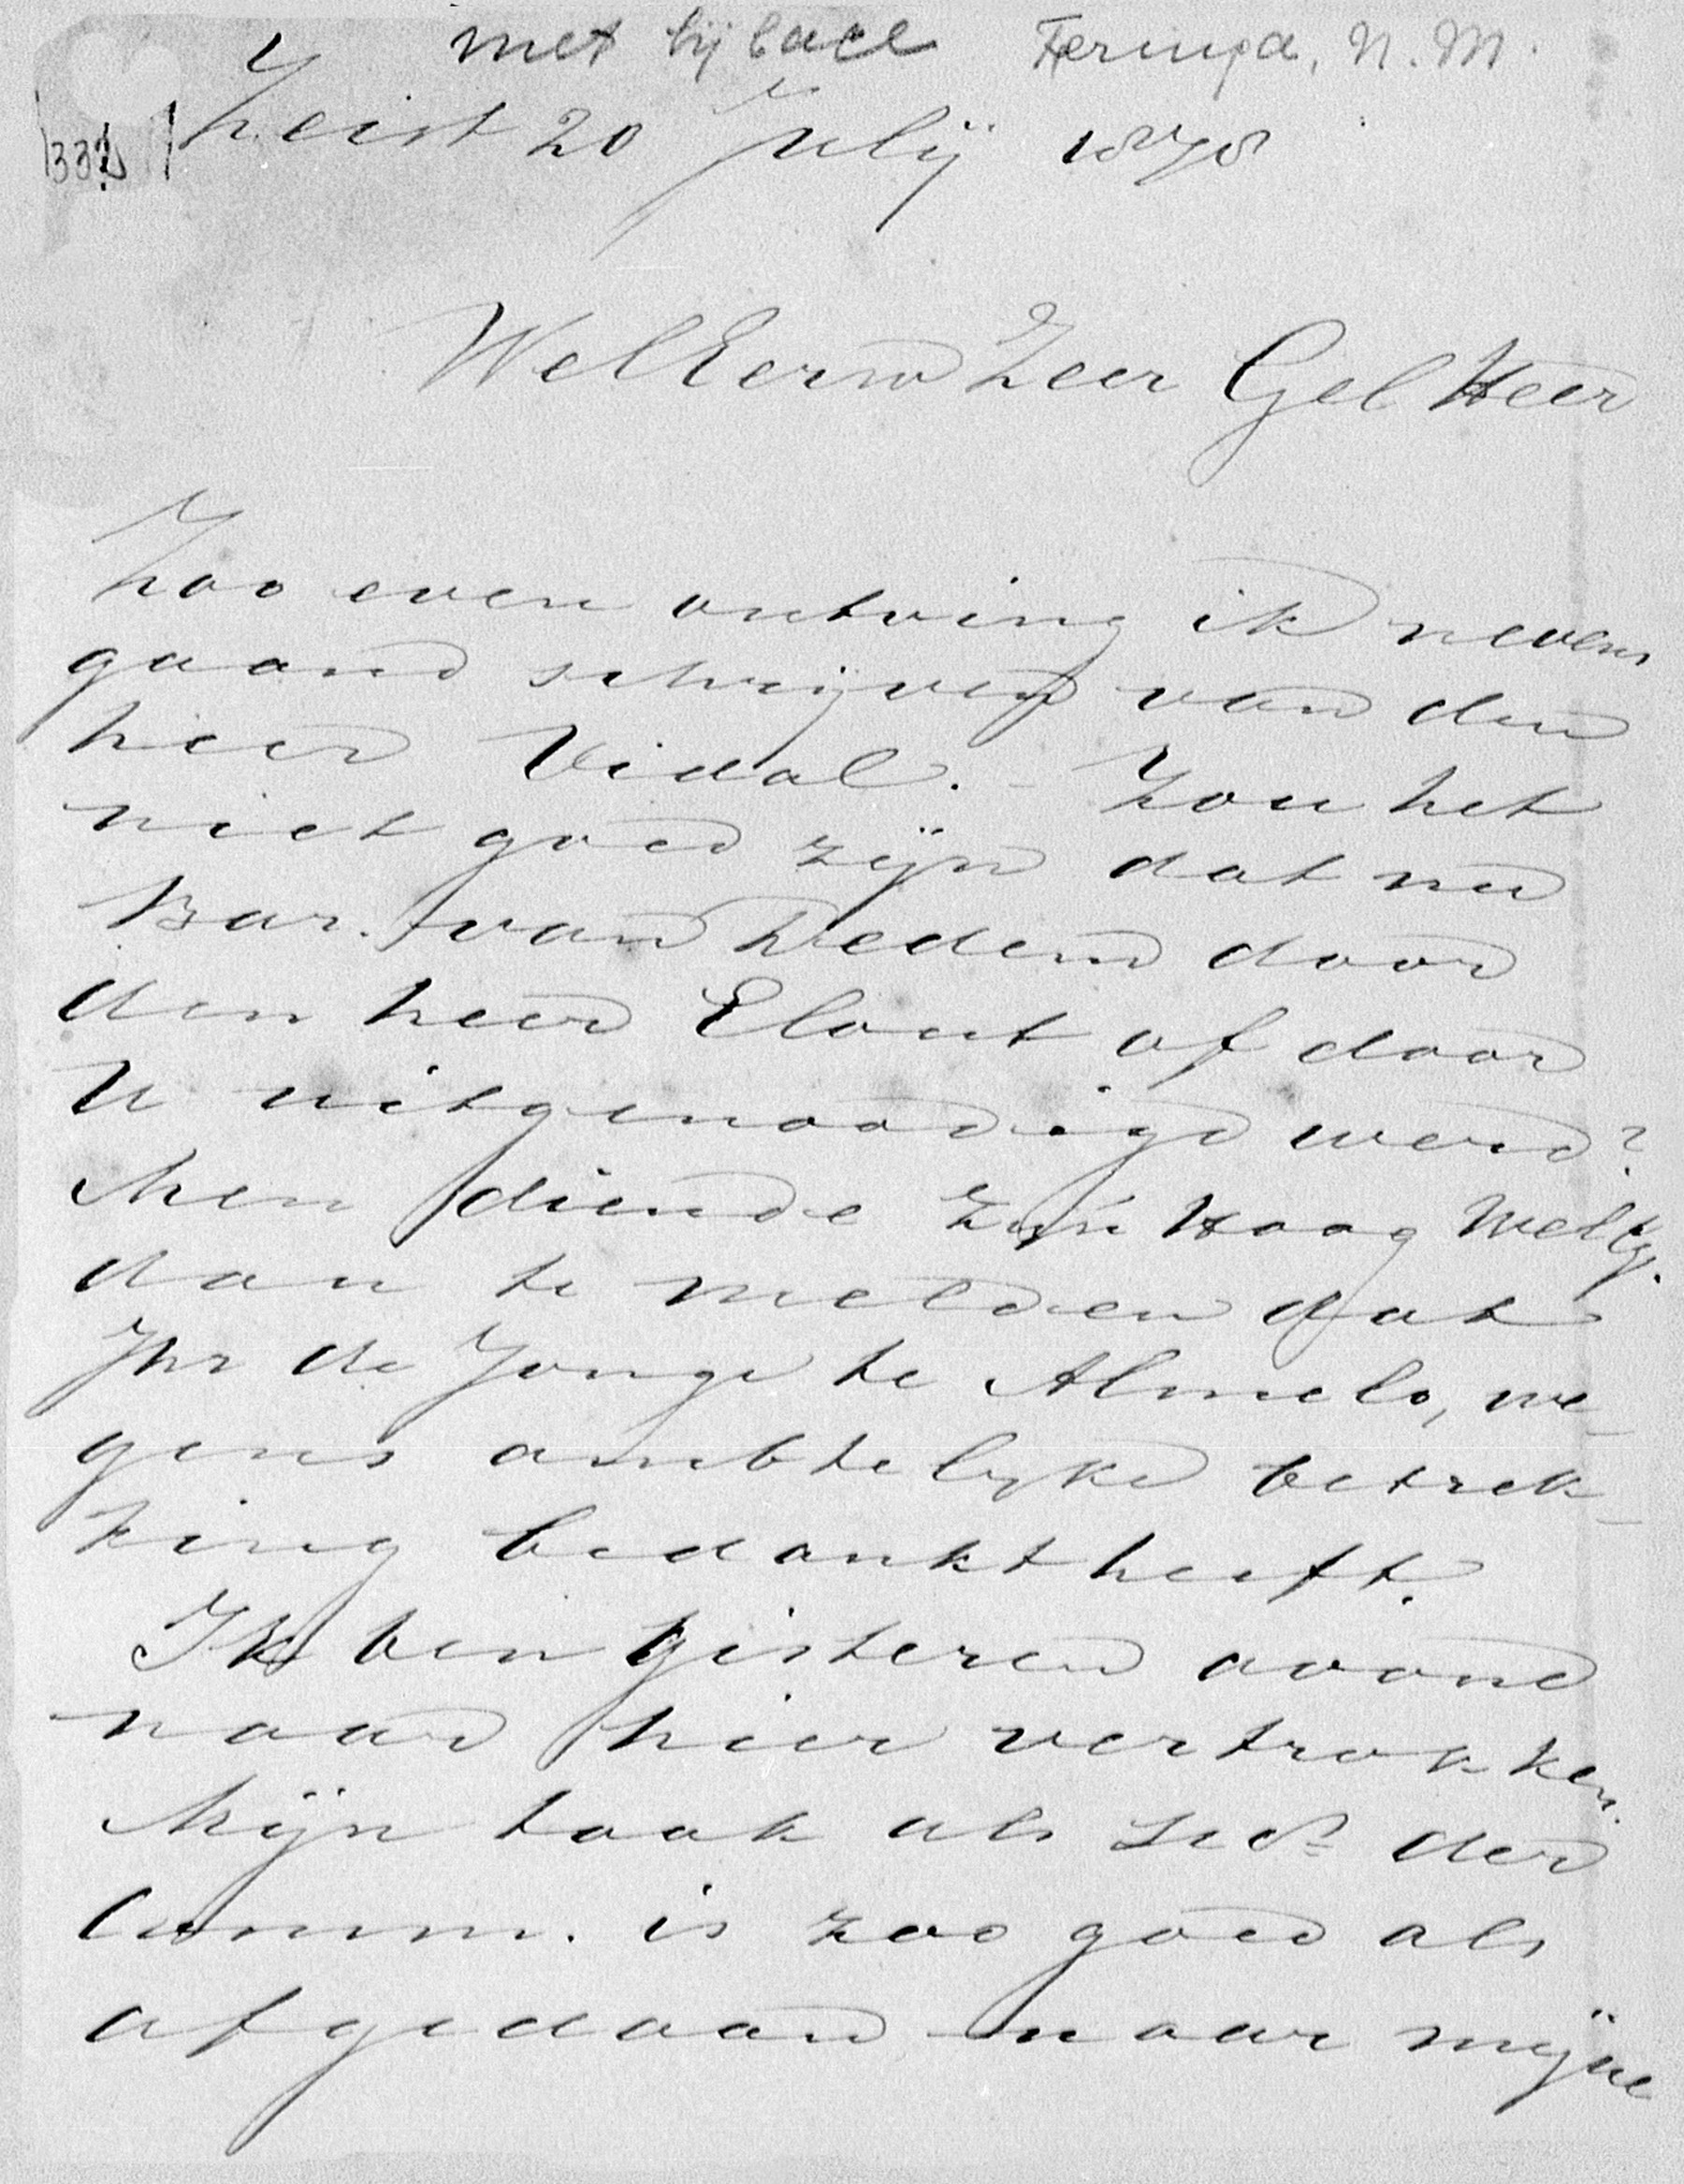 met bijlage Feringa, N. M.
Zeist 20 Julij 1878
WelEerw Zeer Gel Heer
Zoo even ontving ik nevens
gaand schrijven van den
heer Vidal. - Zou het
niet goed zijn dat nu
Bar. van Dedem door
den heer Elout of door
U uitgenoodigd werd?
Men diende Zijn Hoog Welg.
dan te melden dat
Jhr de Jonge te Almelo, we-
gens ambtelijke betrek-
king bedankt heeft.
Ik ben gisteren avond
naar hier vertrokken.
Mijn taak als Secr der
Comm. is zoo goed als
afgedaan maar mijne